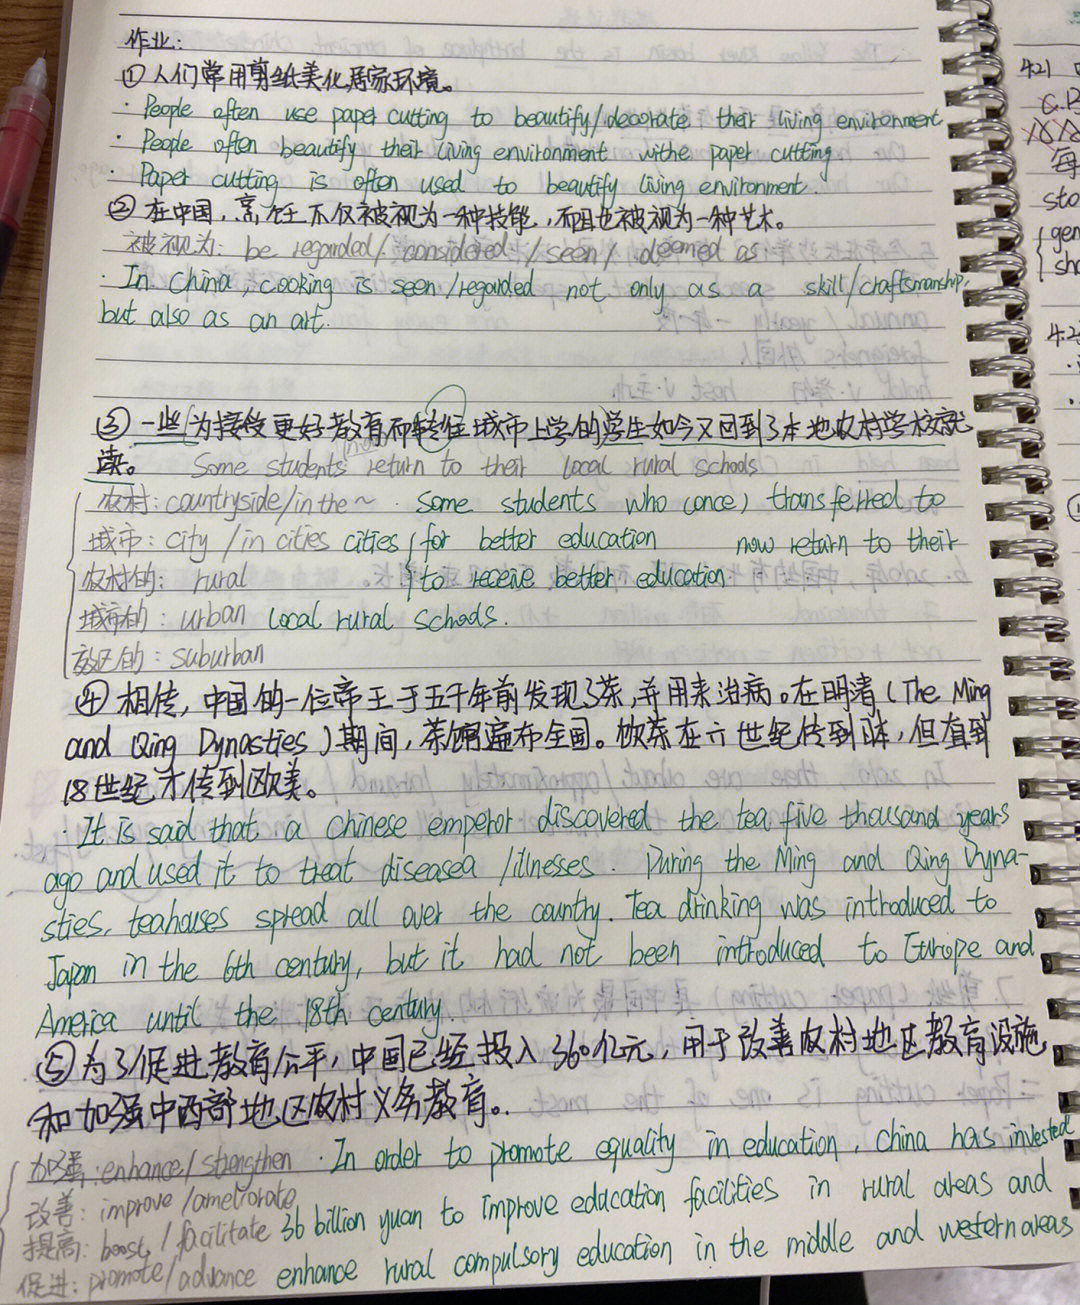 作业:
①人们常用剪纸美化居家环境。
· People often use paper cutting to beautify/decorate their living environment
· People often beautify their living environment withe paper cutting
· Paper cutting is often used to beautify living environment
②在中国,烹饪不仅被视为一种技能,而且也被视为一种艺术。
被视为: be regarded/considered/seen/deemed as
· In China, cooking is seen/regarded not only as a skill/craftsmanship,
but also as an art.
③一些为接受更好教育而转往城市上学的学生如今又回到了本地农村学校就
读。 Some students now return to their local rural schools
农村: countryside/in the ~ · Some students who (once) transferred to
城市: city/in cities cities for better education now return to their
农村的: rural to receive better education
城市的: urban local rural schools.
郊区的: suburban
④相传,中国的一位帝王于五千年前发现了茶,并用来治病。在明清(The Ming
and Qing Dynasties)期间,茶馆遍布全国。饮茶在六世纪传到日本,但直到
18世纪才传到欧美。
· It is said that a Chinese emperor discovered the tea five thousand years
ago and used it to treat diseasea/illnesses. During the Ming and Qing Dyna-
sties, teahouses spread all over the country. Tea drinking was introduced to
Japan in the 6th century, but it had not been introduced to Europe and
America until the 18th century.
⑤为了促进教育公平,中国已经投入360亿元,用于改善农村地区教育设施
和加强中西部地区农村义务教育。
加强: enhance/strengthen · In order to promote equality in education, China has invested
改善: improve/ameliorate
提高: boost/facilitate 36 billion yuan to improve education facilities in rural areas and
促进: promote/advance enhance rural compulsory education in the middle and western areas
421
每
sto